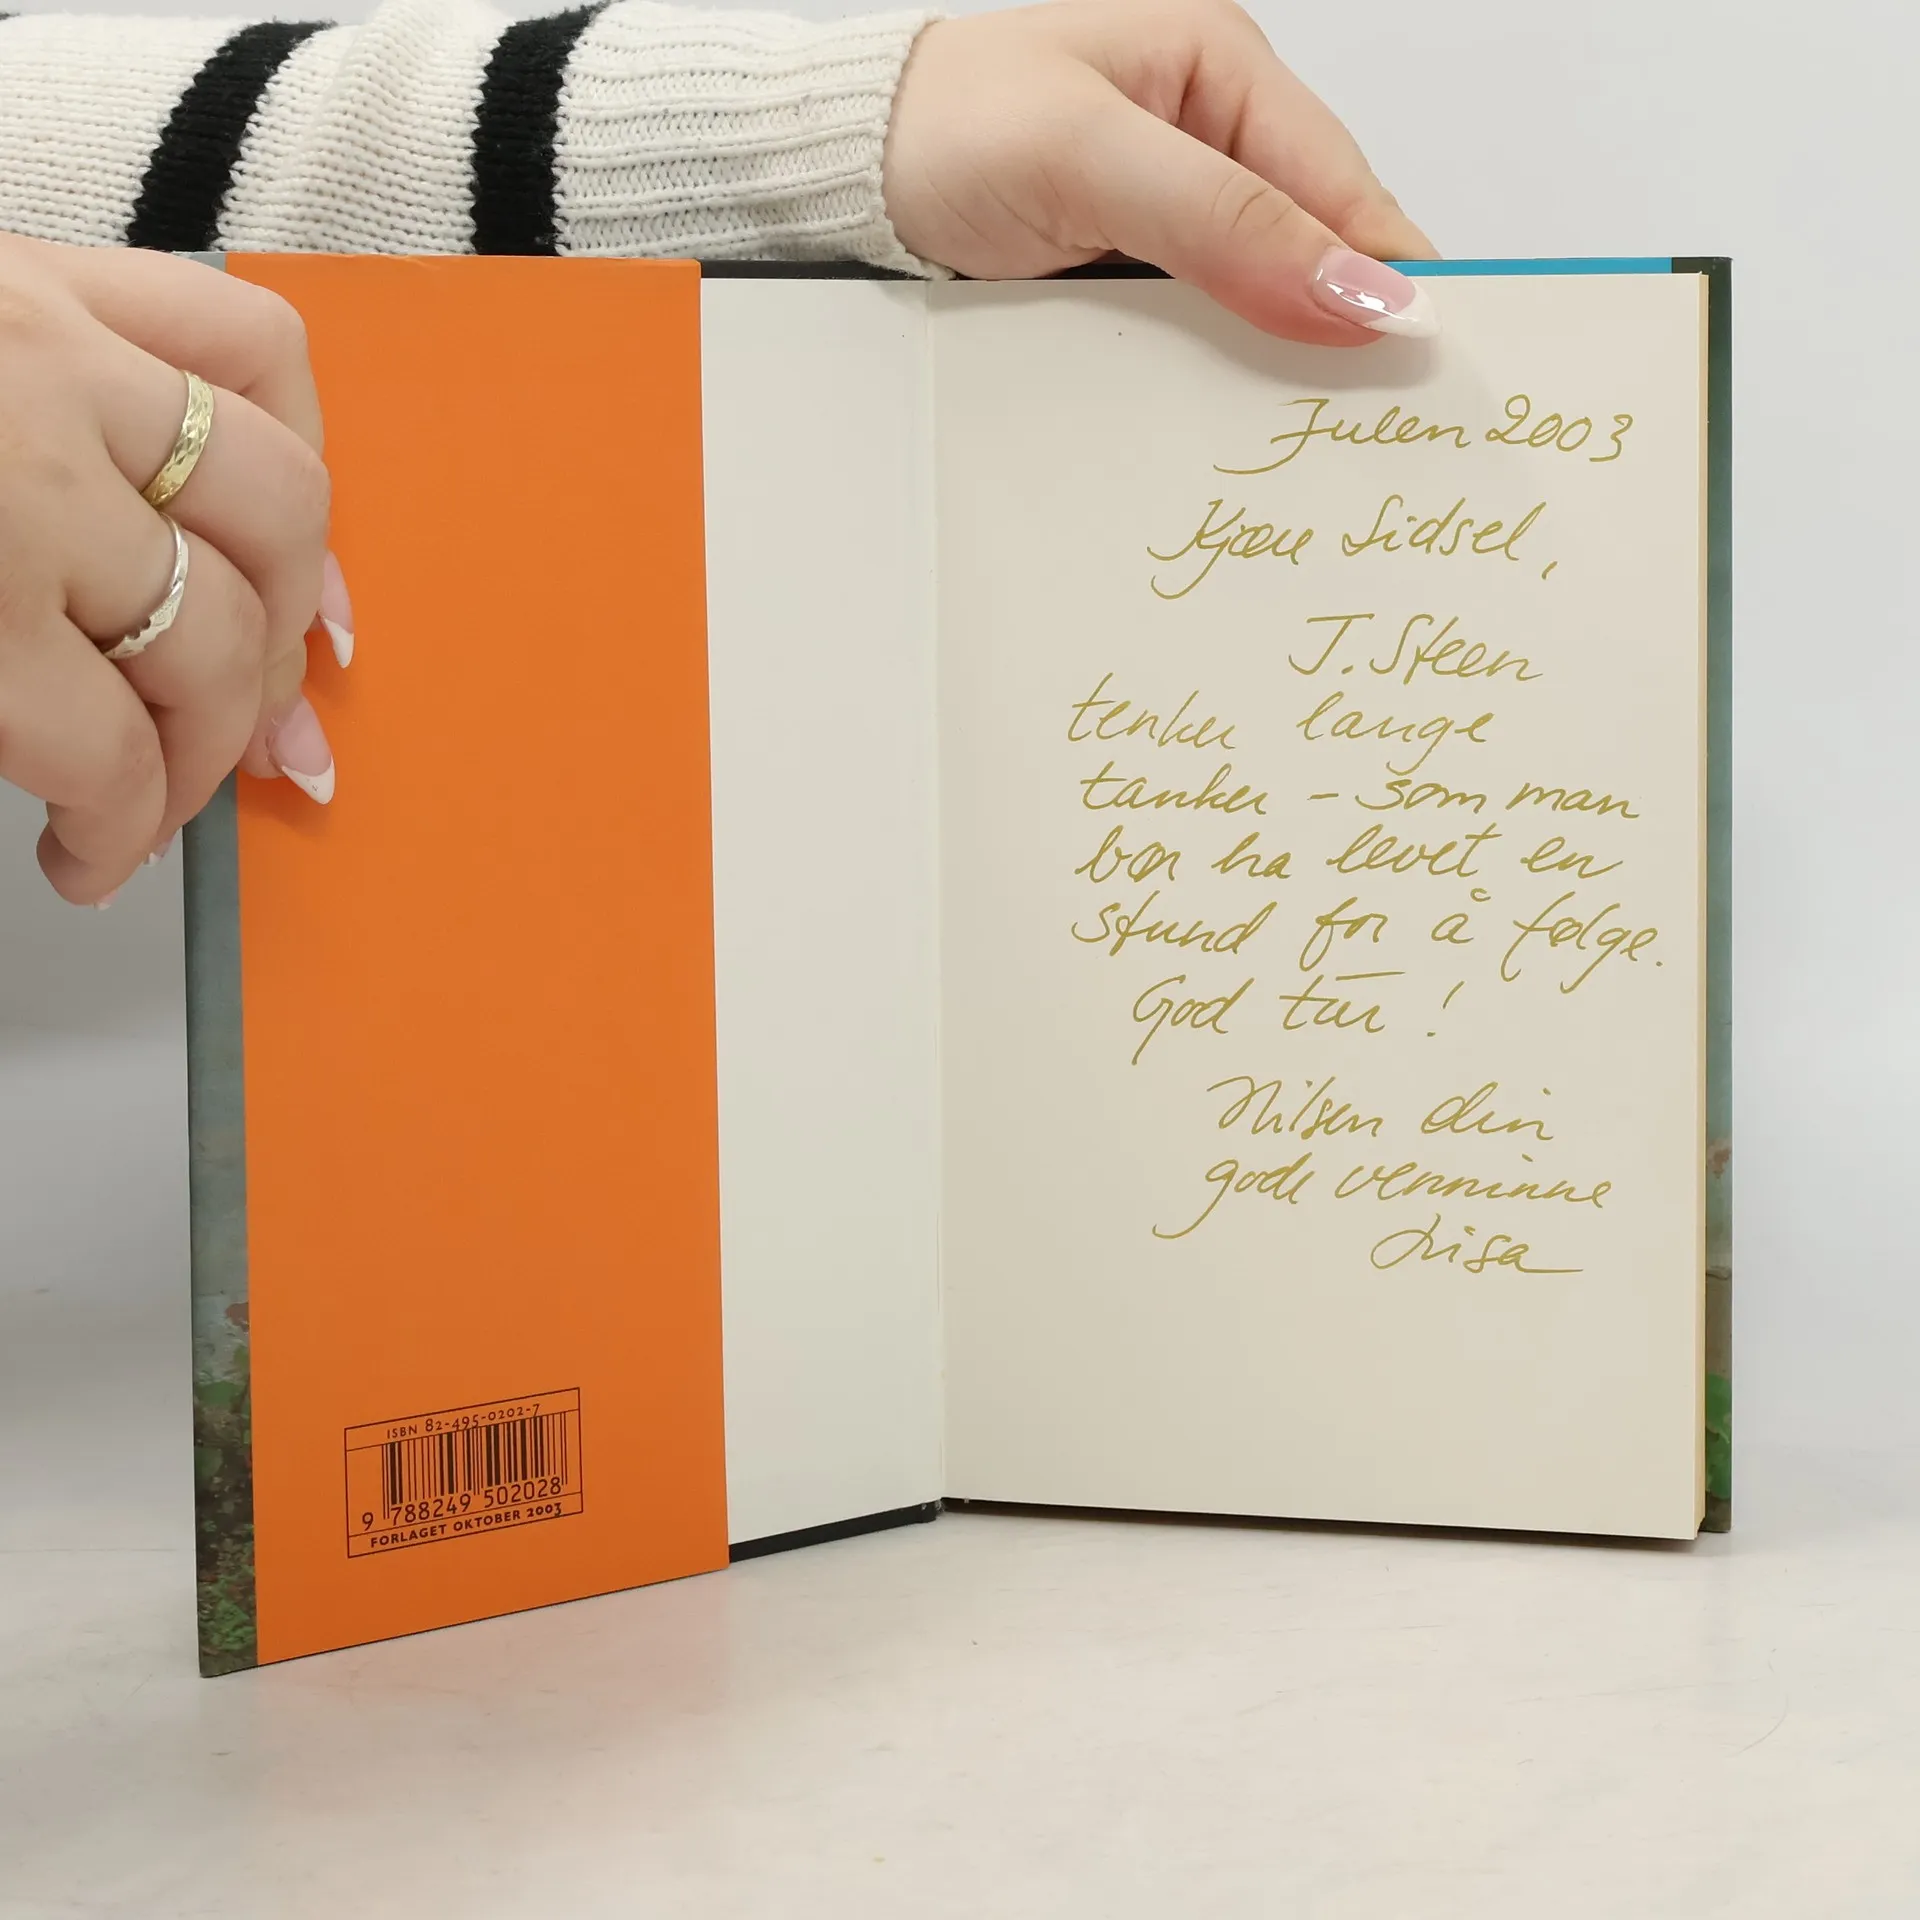 ISBN 82-495-0202-7
9 788249 502028
FORLAGET OKTOBER 2003
Julen 2003
Kjære Sidsel,
T. Steen
tenker lange
tanker – som man
bør ha levet en
stund for å følge.
God tur!
Hilsen din
gode venninne
Lisa